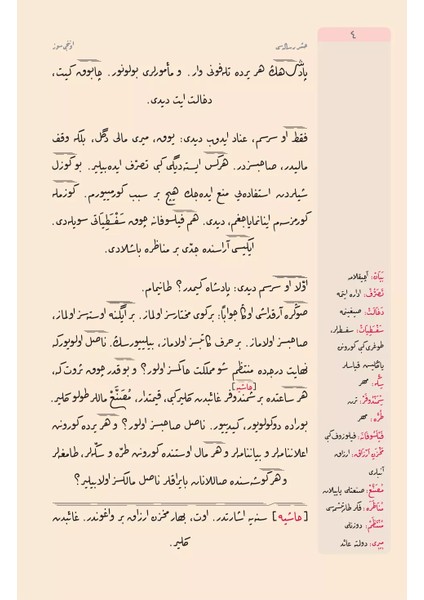 ٤
حشر رساله‌سى
اوننجى سوز
پادشاهك هر يرده تلفونى وار. و مأمورلرى بولونور. چابوق گيت،
دخالت ايت ديدى.
فقط او سرسم، عناد ايدوب ديدى: يوق، ميرى مالى دگل، بلكه وقف
ماليدر، صاحبسزدر. هركس ايسته‌ديگى گبى تصرّف ايده‌بيلير. بو گوزل
شيلردن استفاده‌يى منع ايده‌جك هيچ بر سبب گورمييورم. گوزمله
گورمزسم اينانمايه‌جغم، ديدى. هم فيلسوفانه چوق سفسطياتى سويله‌دى.
ايكيسى آراسنده جدّى بر مناظره باشلادى.
اوّلا او سرسم ديدى: پادشاه كيمدر؟ طانيمام.
صوڭره آرقداشى اوڭا جوابًا: بر كوى مختارسز اولماز. بر ايگنه اوسته‌سز اولماز،
صاحبسز اولاماز. بر حرف كاتبسز اولاماز، بيلييورسڭ. ناصل اولويور كه
نهايت درجه‌ده منتظم شو مملكت حاكمسز اولور؟ و بو قدر چوق ثروت كه،
هر ساعتده بر شمندوفر [حاشيه] غائبدن گلير گبى، قيمتدار، مصنّع ماللرله طولو گلير.
بوراده دوكولويور، گيدييور. ناصل صاحبسز اولور؟ و هر يرده گورونن
اعلاننامه‌لر و بياننامه‌لر و هر مال اوستنده گورونن طرّه و سكّه‌لر، طامغه‌لر
و هر كوشه‌سنده صاللانان بايراقلر ناصل مالكسز اولابيلير؟
[حاشيه] سنه‌يه اشارتدر. اوت، بهار مخزن ارزاق بر واغوندر. غائبدن
گلير.
بيان: آچيقلامه
تصرّف: اداره ايتمه
دخالت: صيغينمه
سفسطيات: سفسطه‌لر،
طوغرى گبى گورونن
ياڭليش قياسلر
سكّه: مهر
شمندوفر: ترن
طرّه: مهر
فيلسوفانه: فيلوزوف گبى
مخزن ارزاق: ارزاق
آنبارى
مصنّع: صنعتلى ياپيلان
مناظره:
منتظم: دوزنلى
ميرى: دولته عائد